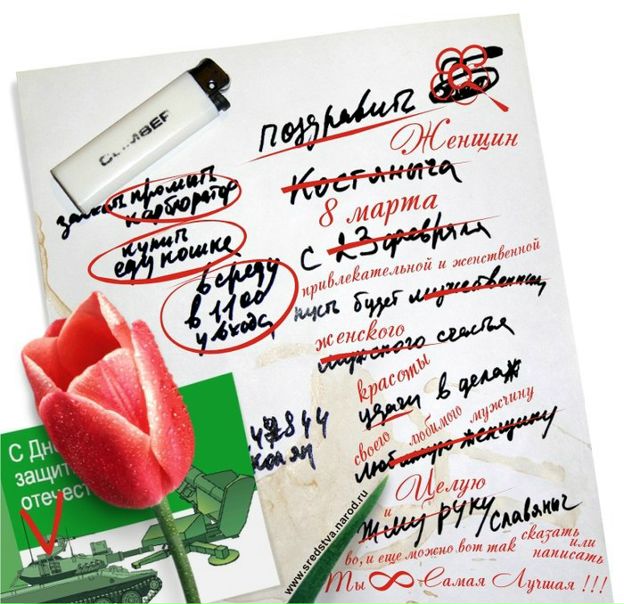 CLIMBER
поздравить
Женщин
Костяныча
8 марта
с 23 февраля
привлекательной и женственной
пусть будет мужественным
женского
мужского счастья
красоты
удачи в делах
своего любимого мужчину
любимую женщину
Целую
и
Жму руку/Славяныч
во, и еще можно вот так сказать или написать
Ты ∞ Самая Лучшая !!!
промыть
карбюратор
купить
еду кошке
в среду
в 1100
у входа
47844
колян
С Дн
защит
отечест
www.sredstva.narod.ru